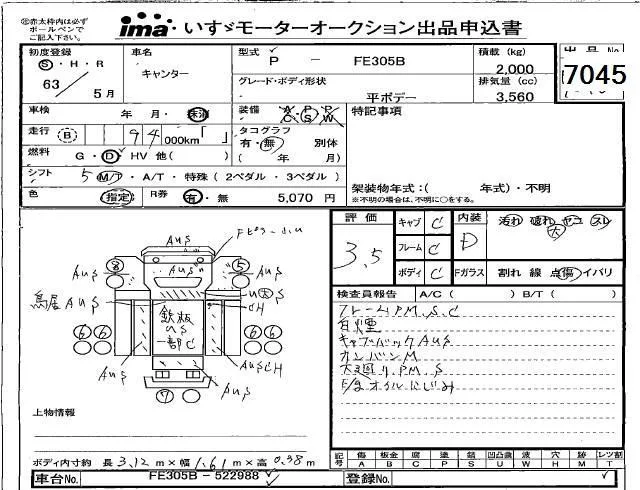 ㊟赤太枠内は必ず
ボールペンで
ご記入下さい。
ima いすゞモーターオークション出品申込書
初度登録
Ⓢ・H・R
63 / 5月
車名
キャンター
型式
P - FE305B
グレード・ボディ形状
平ボデー
積載 (kg)
2,000
排気量 (cc)
3,560
出品No.
7045
車検
年 月・抹消
装備
A/C P/S P/W
特記事項
走行
B 94 000km「 」
タコグラフ
有・無 別体
( 年 月)
燃料
G・D・HV 他( )
シフト
5 M/T・A/T・特殊(2ペダル・3ペダル)
色
指定
R券
有・無 5,070 円
架装物年式:( 年式)・不明
※不明の場合は、不明に○をする。
評価
3.5
キャブ C
フレーム C
ボディ C
内装
D
汚れ 破れ ヤコ スレ
大
Fガラス
割れ 線 点傷 イバリ
検査員報告 A/C( ) B/T( )
フレームPM,S,C
白煙
キャブバックAuS
カンバンM
大廻りPM,S
E/gオイルにじみ
AuS
AuS
8
AuS"
5
AuS
鳥居 AuS
鉄板
uS
一部C
CH
6 6
6 6
AuS
AuSCH
AuS
7
上物情報
ボディ内寸約 長 3.12 m×幅 1.61 m×高 0.38 m
記号
傷 板金 腐 塗 錆 凹凸歪 ワ 穴 跡 レンズ割
A B C P S U W H M T
車台No. FE305B-522988
登録No.